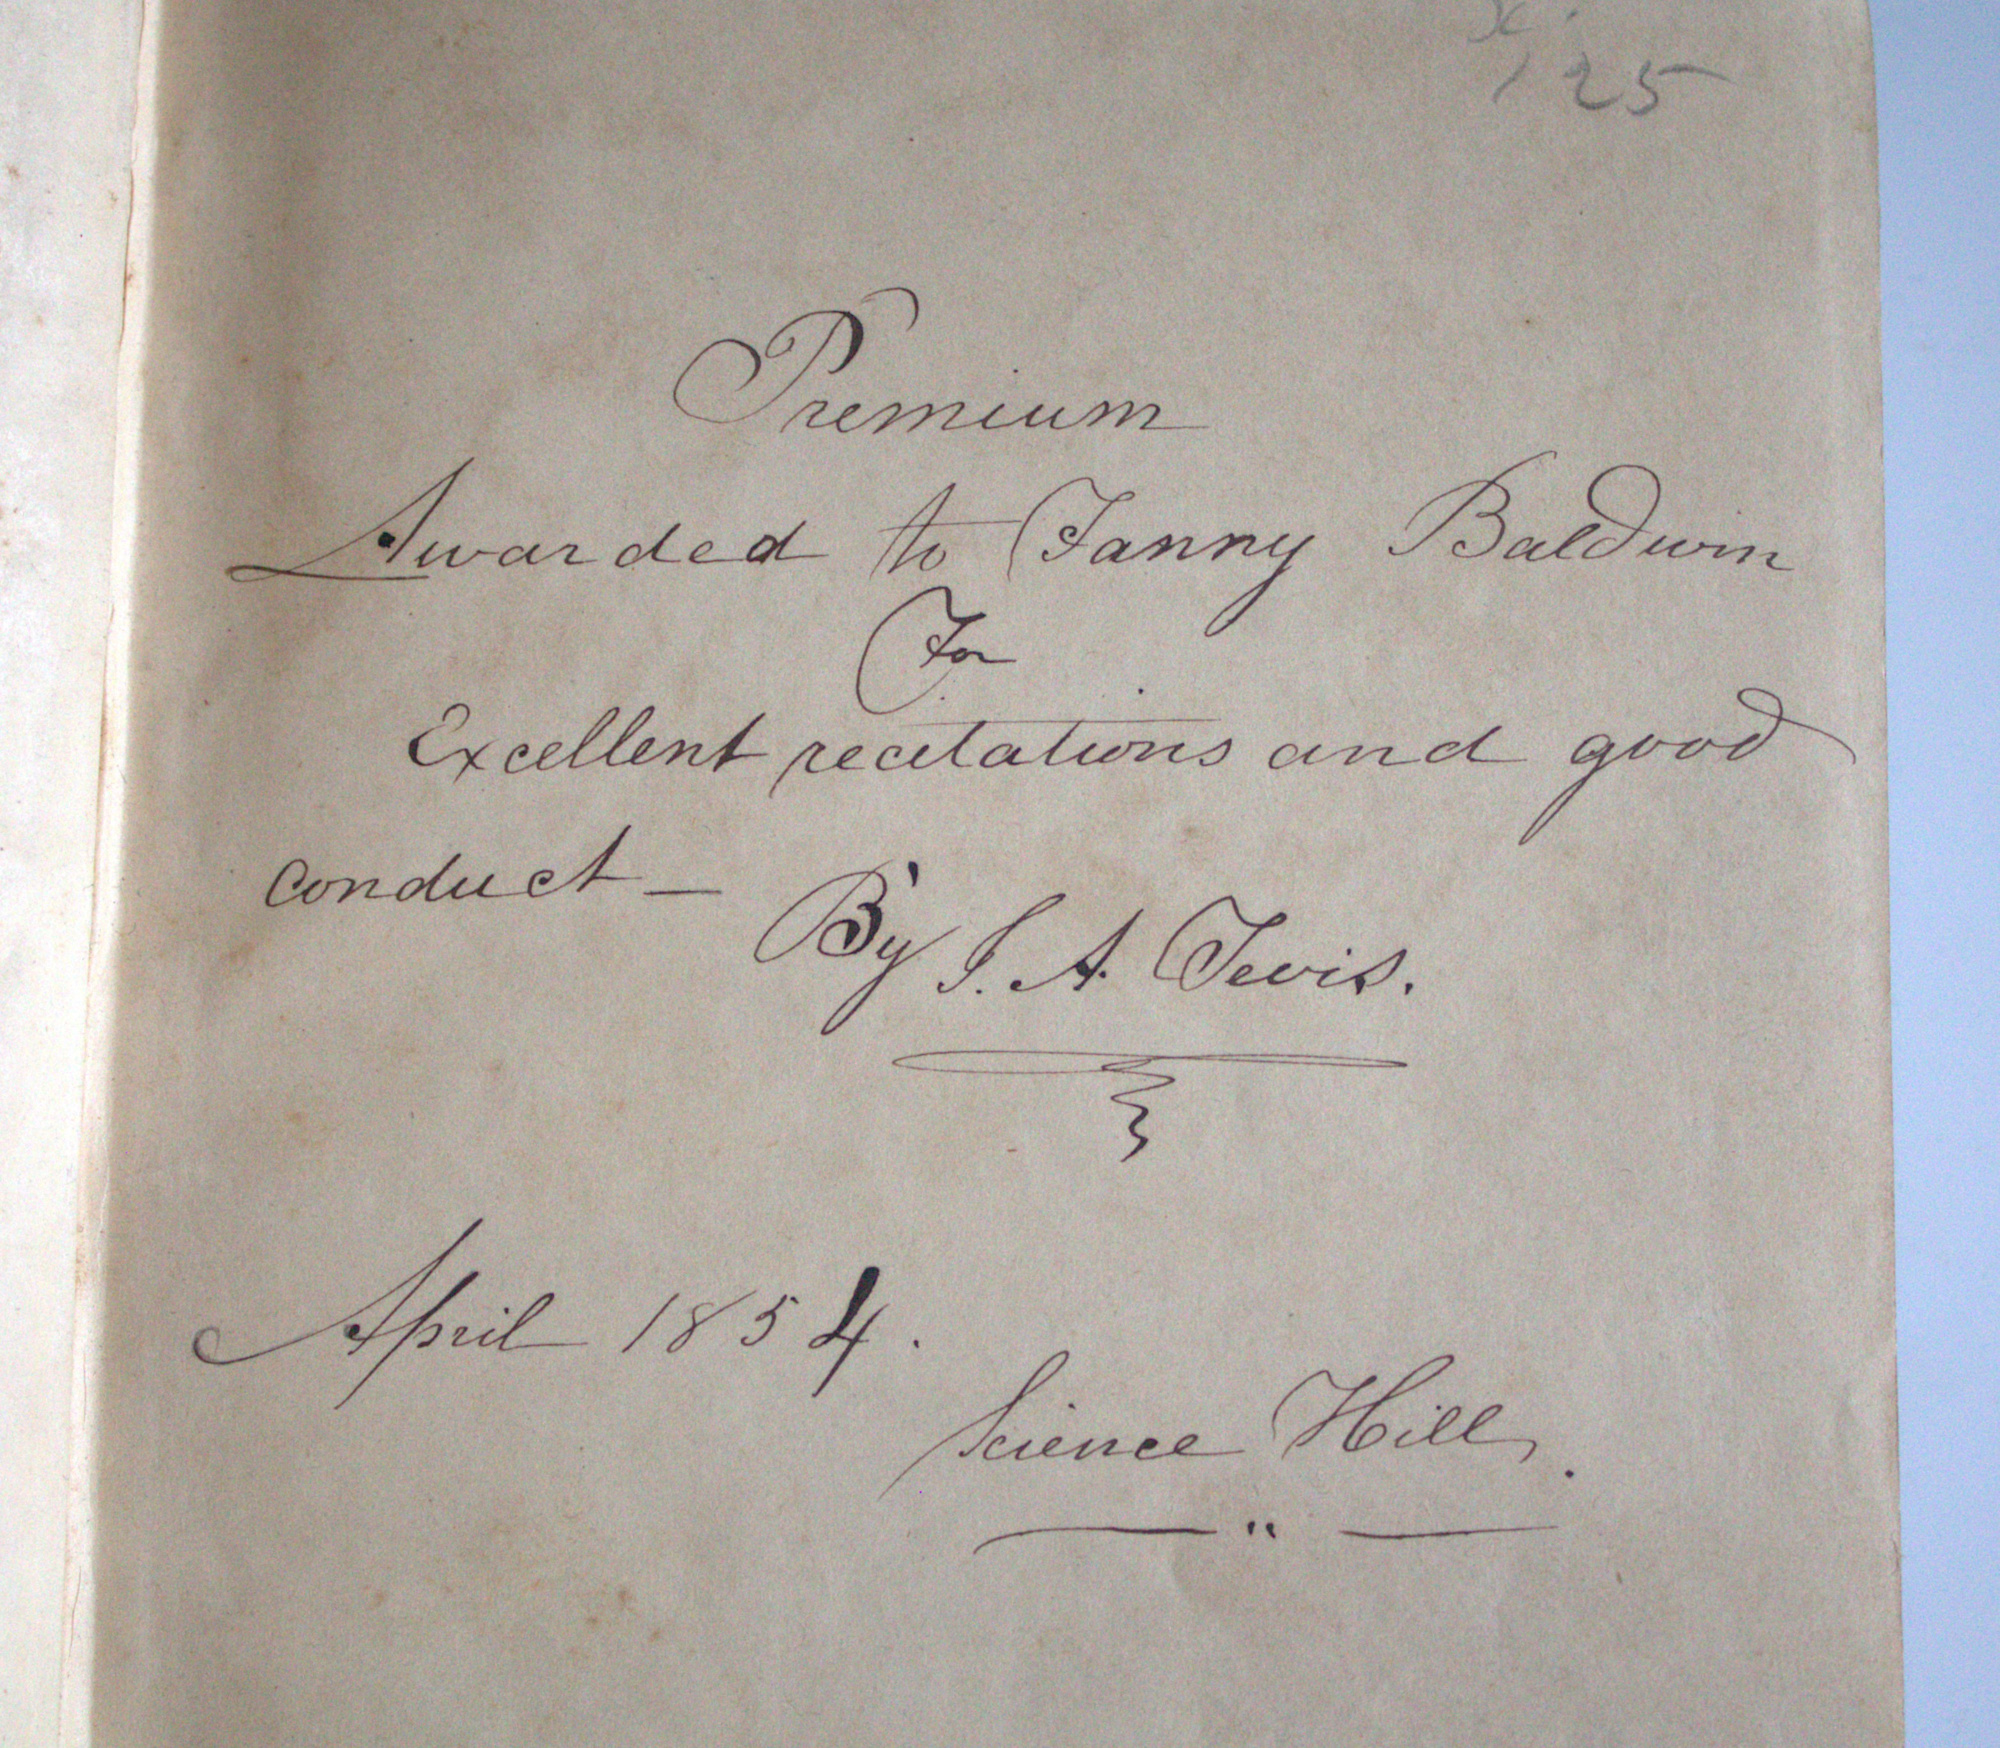 125
Premium
Awarded to Fanny Baldwin
For
Excellent recitations and good
conduct — By J. A. Tevis.
April 1854.
Science Hill.